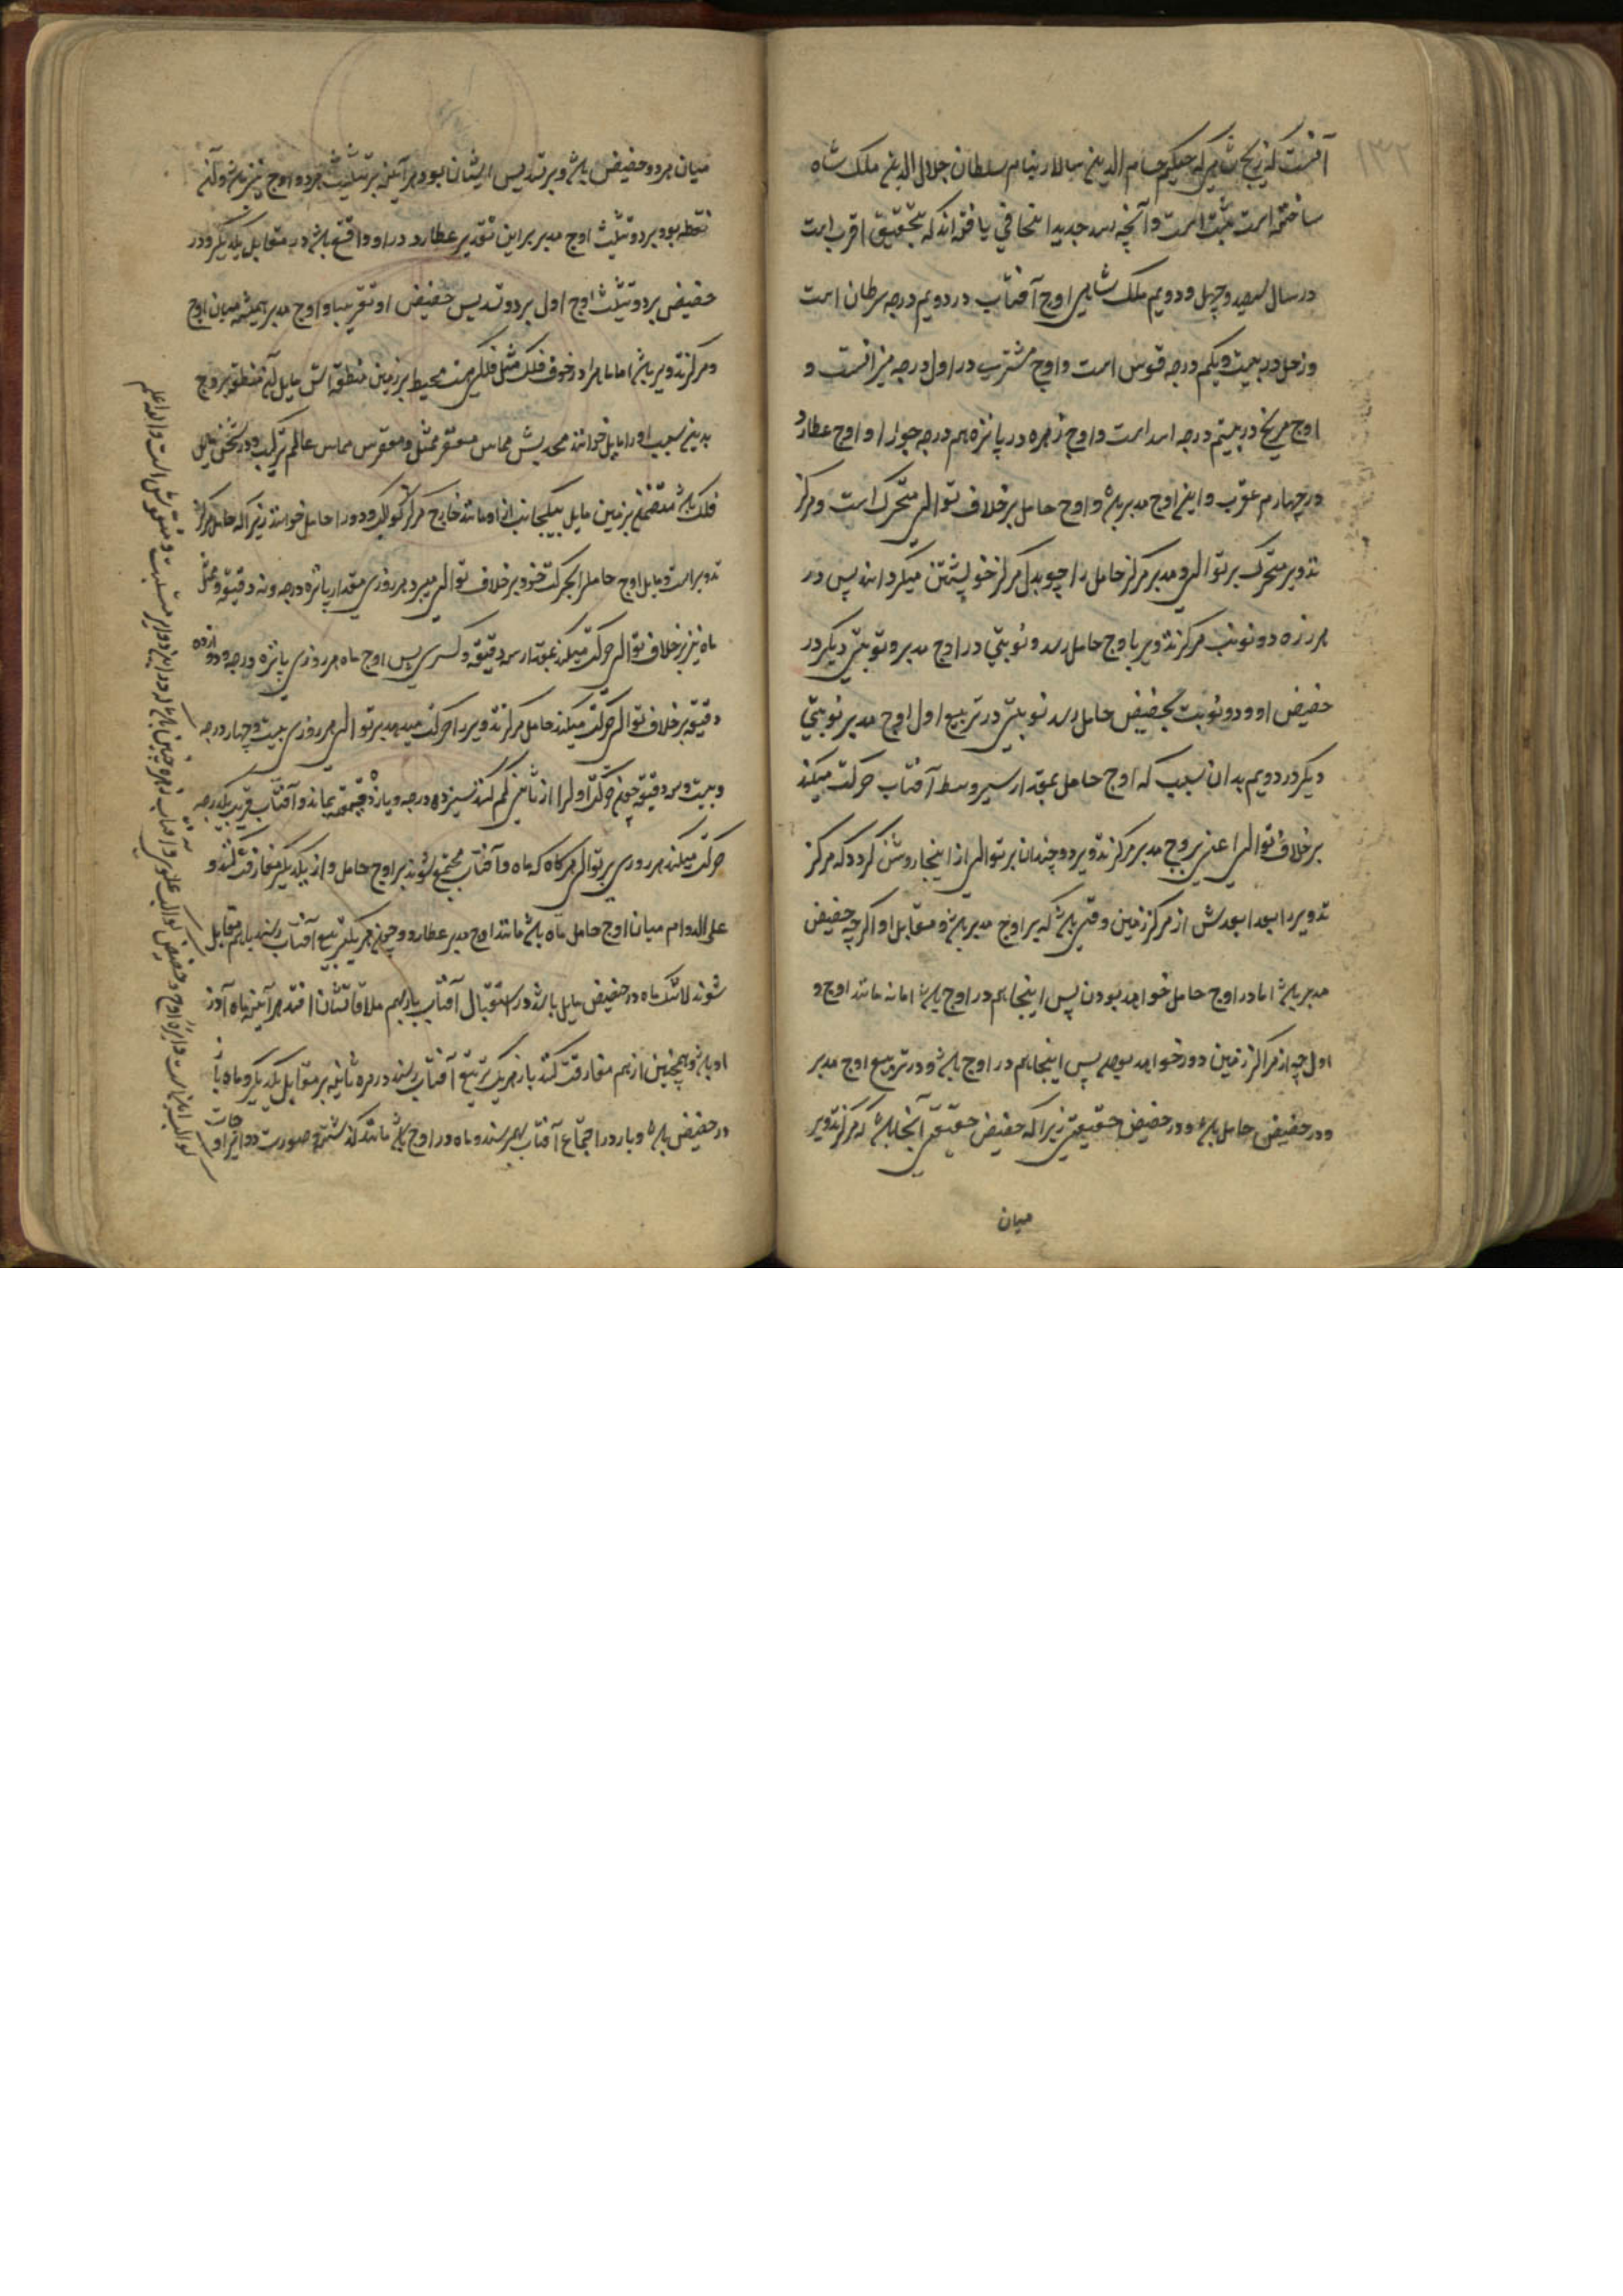 ۱۳۲
آنست که زیج شاهی که حکیم حسام الدین سالار بنام سلطان جلال الدین ملک شاه
ساخته است مثبت است و آنچه رصد جدید ایلخانی یافته‌اند که بتحقیق اقرب است
در سال سیصد و چهل و دویم ملک شاهی اوج آفتاب در دویم درجه سرطان است
و زحل در بیست و یکم درجه قوس است و اوج مشتری در اول درجه میزانست و
اوج مریخ در بیستم درجه اسد است و اوج زهره در پانزدهم درجه جوزا و اوج عطارد
در چهارم عقرب و این اوج مدیر باشد و اوج حامل بر خلاف توالی متحرک است و مرکز
تدویر متحرک بر توالی و مدیر مرکز حامل را حول مرکز خویشتن میگرداند پس در
هر دوره دو نوبت مرکز تدویر باوج حامل رسد و نوبتی در اوج مدیر و نوبتی دیگر در
حضیض او و دو نوبت بحضیض حامل رسد نوبتی در تربیع اول اوج مدیر نوبتی
دیگر در دویم بدان سبب که اوج حامل بمقدار سیر وسط آفتاب حرکت میکند
بر خلاف توالی اعنی بروج مدیر مرکز تدویر دو چندان بر توالی از اینجا روشن گردد که مرکز
تدویر را بعد ابعدش از مرکز زمین وقتی باشد که بر اوج مدیر باشد و مقابل او اگر چه حضیض
مدیر باشد اما در اوج حامل خواهد بودن پس اینجا هم در اوج باشد اما نه مانند اوج
اول چه از مرکز زمین دور خواهد بود پس اینجا هم در اوج باشد و در تربیع اوج مدیر
و در حضیض حامل باشد و در حضیض حقیقی زیرا که حضیض حقیقی آنجا باشد که مرکز تدویر
میان
میان هر دو حضیض باشد و بر تسدیس ایشان بود و هر آینه بر تثلیث هر دو اوج نیز باشد و آن
نقطه بود بر دو تثلیث اوج مدیر بر این تقدیر عطارد در او واقع باشد در مقابل یکدیگر و در
حضیض بر دو تثلیث اوج اول بر دو تسدیس حضیض او تقریبا و اوج مدیر همیشه میان اوج
و مرکز تدویر باشد اما ماه را در خوف فلک ممثل فلکی هست محیط بر زمین منطقه‌اش مایل از منطقه بروج
بدین سبب او را مایل خوانند محدبش مماس مقعر ممثل و مقعرش مماس عالم ترکیب و در ثخن مایل
فلک باشد متضمن بر زمین مایل بیکجانب از او مانند خارج مرکز کواکب و او را حامل خوانند زیرا که حامل مرکز
تدویر است و مایل اوج حامل را بحرکت خود بر خلاف توالی میبرد هر روزی مقدار یازده درجه و نه دقیقه و ممثل
ماه نیز بر خلاف توالی حرکت میکند بمقدار سه دقیقه و کسری پس اوج ماه هر روزی یازده درجه و دوازده
دقیقه بر خلاف توالی حرکت میکند حامل مرکز تدویر را حرکت میدهد بر توالی هر روزی بیست و چهار درجه
و بیست و سه دقیقه چون حرکت اول را از ثانی کم کنند سیزده درجه و یازده دقیقه بماند و آفتاب قریب یکدرجه
حرکت میکند هر روزی بر توالی هر گاه که ماه و آفتاب مجتمع شوند بر اوج حامل و از یکدیگر مفارقت کنند و
علی الدوام میان اوج حامل ماه باشد مانند اوج مدیر عطارد و چون هر یک بتربیع آفتاب رسند با هم مقابل
شوند لاشک ماه در حضیض مایل باشد در استقبال آفتاب باز بهم ملاقاتشان افتد هر آینه ماه در
او باشد و همچنین از هم مفارقت کنند باز هر یک بتربیع آفتاب رسند در مره ثانیه بر مقابل یکدیگر و ماه باز
در حضیض باشد و باز در اجتماع آفتاب بهم رسند و ماه در اوج باشد مانند گذشته و صورت دوائر او
کواکب اینهاست دایره اوج و حضیض کواکب علوی و آفتاب و زهره همچنین باشد که در این دوایر مثبت و منقوش است والله اعلم